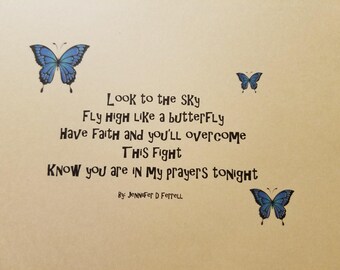 Look to the sky
Fly high like a butterfly
Have faith and you'll overcome
This fight
Know you are in my prayers tonight
By: Jennifer D Ferrell